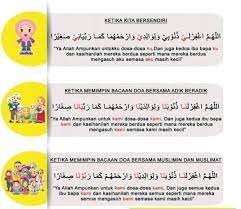 KETIKA KITA BERSENDIRI
اللَّهُمَّ اغْفِرْلِيْ ذُنُوْبِيْ وَلِوَالِدَيَّ وَارْحَمْهُمَا كَمَا رَبَّيَانِيْ صَغِيْرًا
"Ya Allah Ampunkan untukku dosa-dosa ku,Dan juga kedua ibu bapa ku
dan kasihanilah mereka berdua seperti mana mereka berdua
mengasuh aku semasa aku masih kecil"
KETIKA MEMIMPIN BACAAN DOA BERSAMA ADIK BERADIK
اللَّهُمَّ اغْفِرْلَنَا ذُنُوْبَنَا وَلِوَالِدِيْنَا وَارْحَمْهُمَا كَمَا رَبَّيَانَا صِغَارًا
"Ya Allah Ampunkan untuk kami dosa-dosa kami, Dan juga kedua ibu bapa
kami dan kasihanilah mereka berdua seperti mana mereka berdua
mengasuh kami semasa kami masih kecil"
KETIKA MEMIMPIN BACAAN DOA BERSAMA MUSLIMIN DAN MUSLIMAT
اللَّهُمَّ اغْفِرْلَنَا ذُنُوْبَنَا وَلِوَالِدِيْنَا وَارْحَمْهُمْ كَمَا رَبَّوْنَا صِغَارًا
"Ya Allah Ampunkan untuk kami dosa-dosa kami, Dan juga kedua ibu
bapa kami dan kasihanilah mereka semua seperti mana mereka
semua mengasuh kami semasa kami masih kecil"